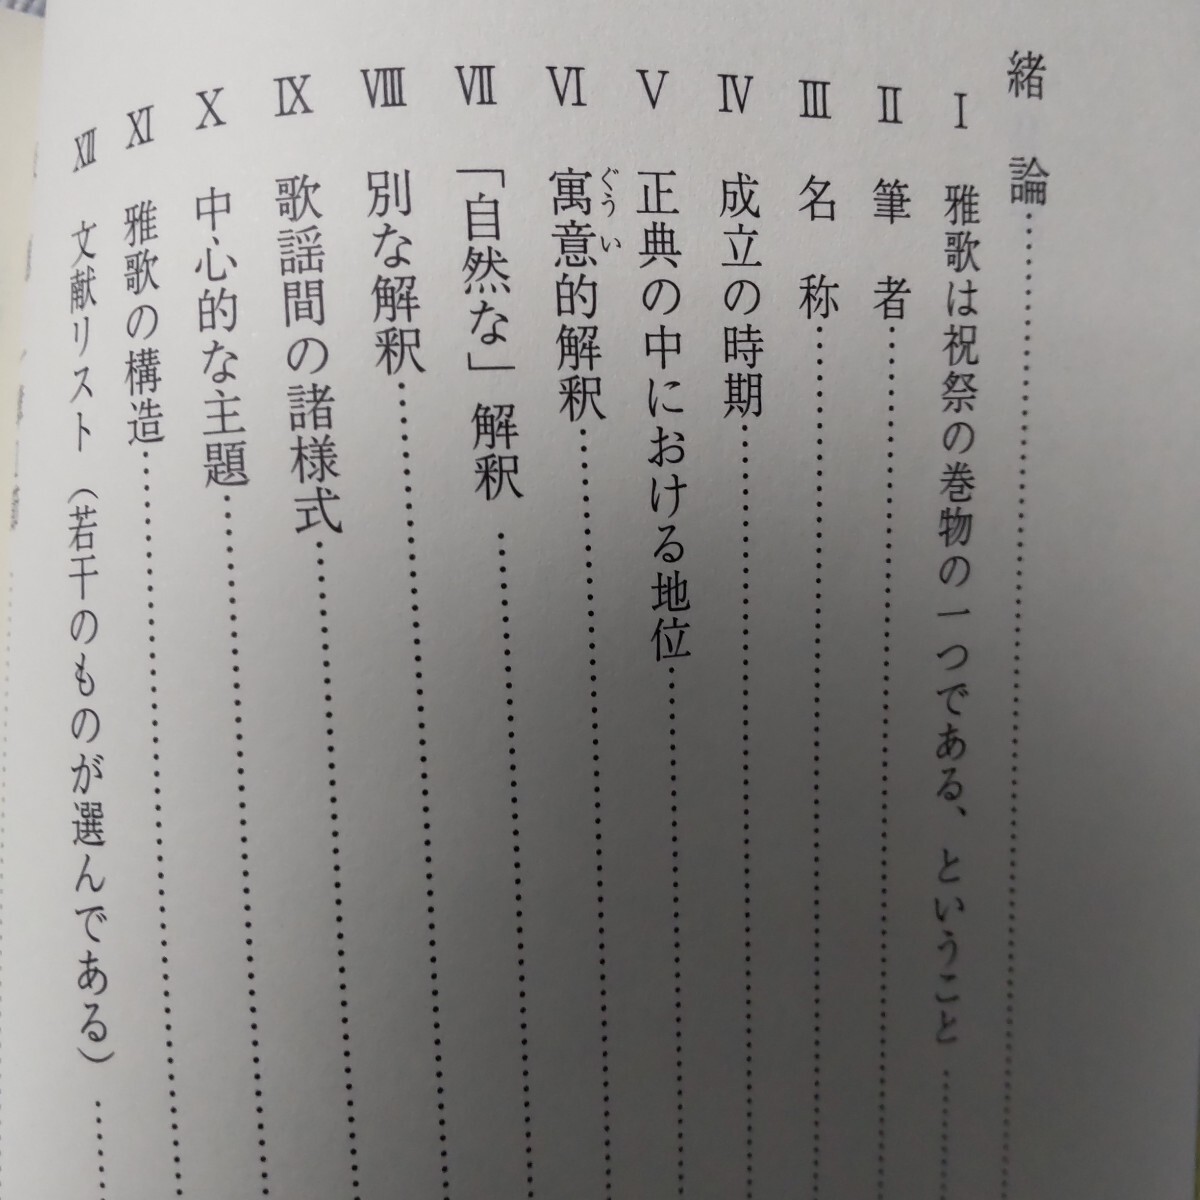 緒論
Ⅰ 雅歌は祝祭の巻物の一つである、ということ
Ⅱ 筆者
Ⅲ 名称
Ⅳ 成立の時期
Ⅴ 正典の中における地位
Ⅵ 寓意的解釈
ぐうい
Ⅶ 「自然な」解釈
Ⅷ 別な解釈
Ⅸ 歌謡間の諸様式
Ⅹ 中心的な主題
Ⅺ 雅歌の構造
Ⅻ 文献リスト（若干のものが選んである）